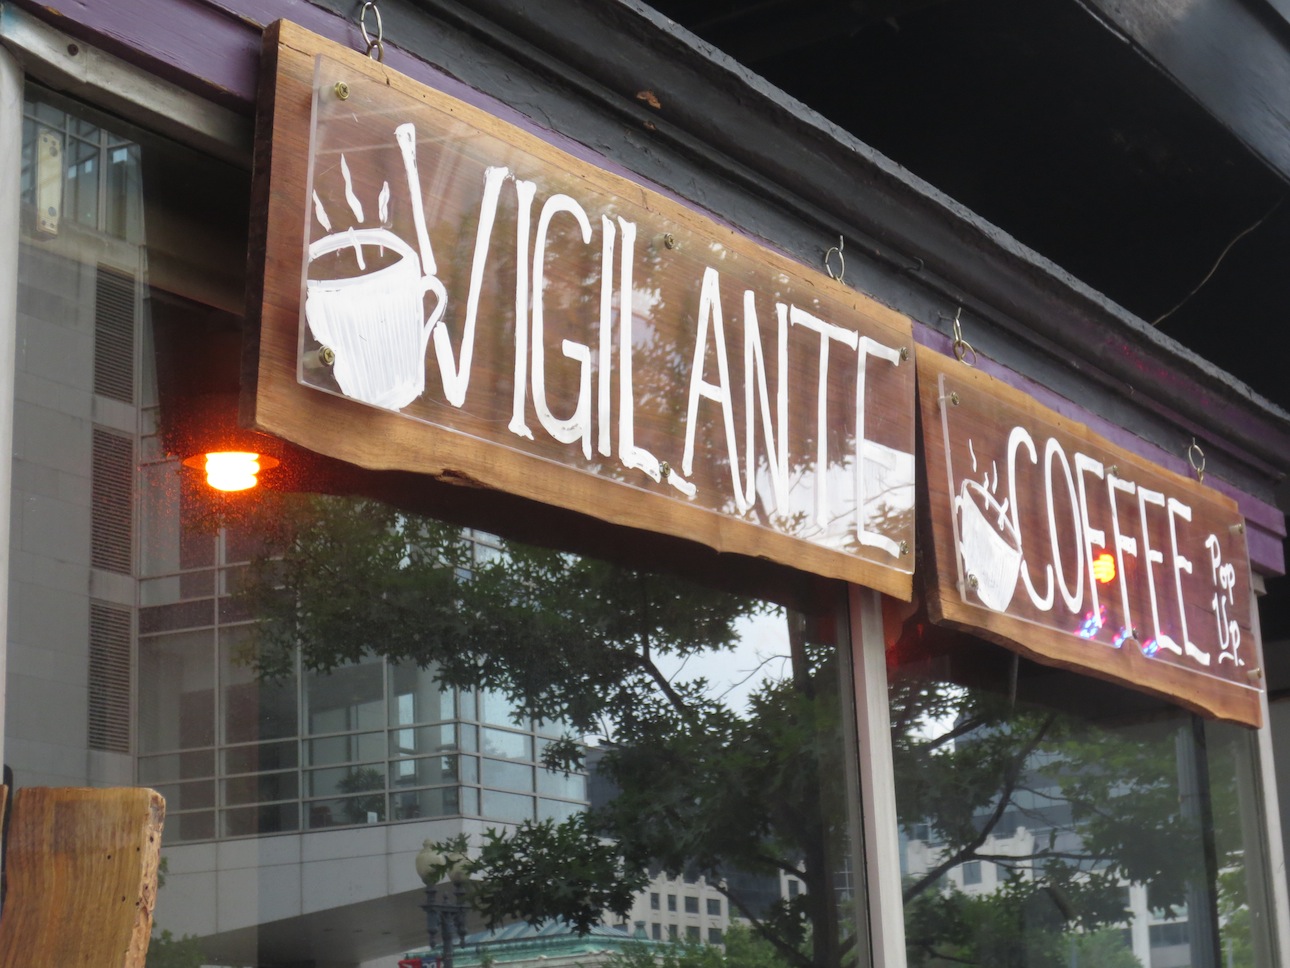 VIGILANTE
COFFEE
Pop
Up.